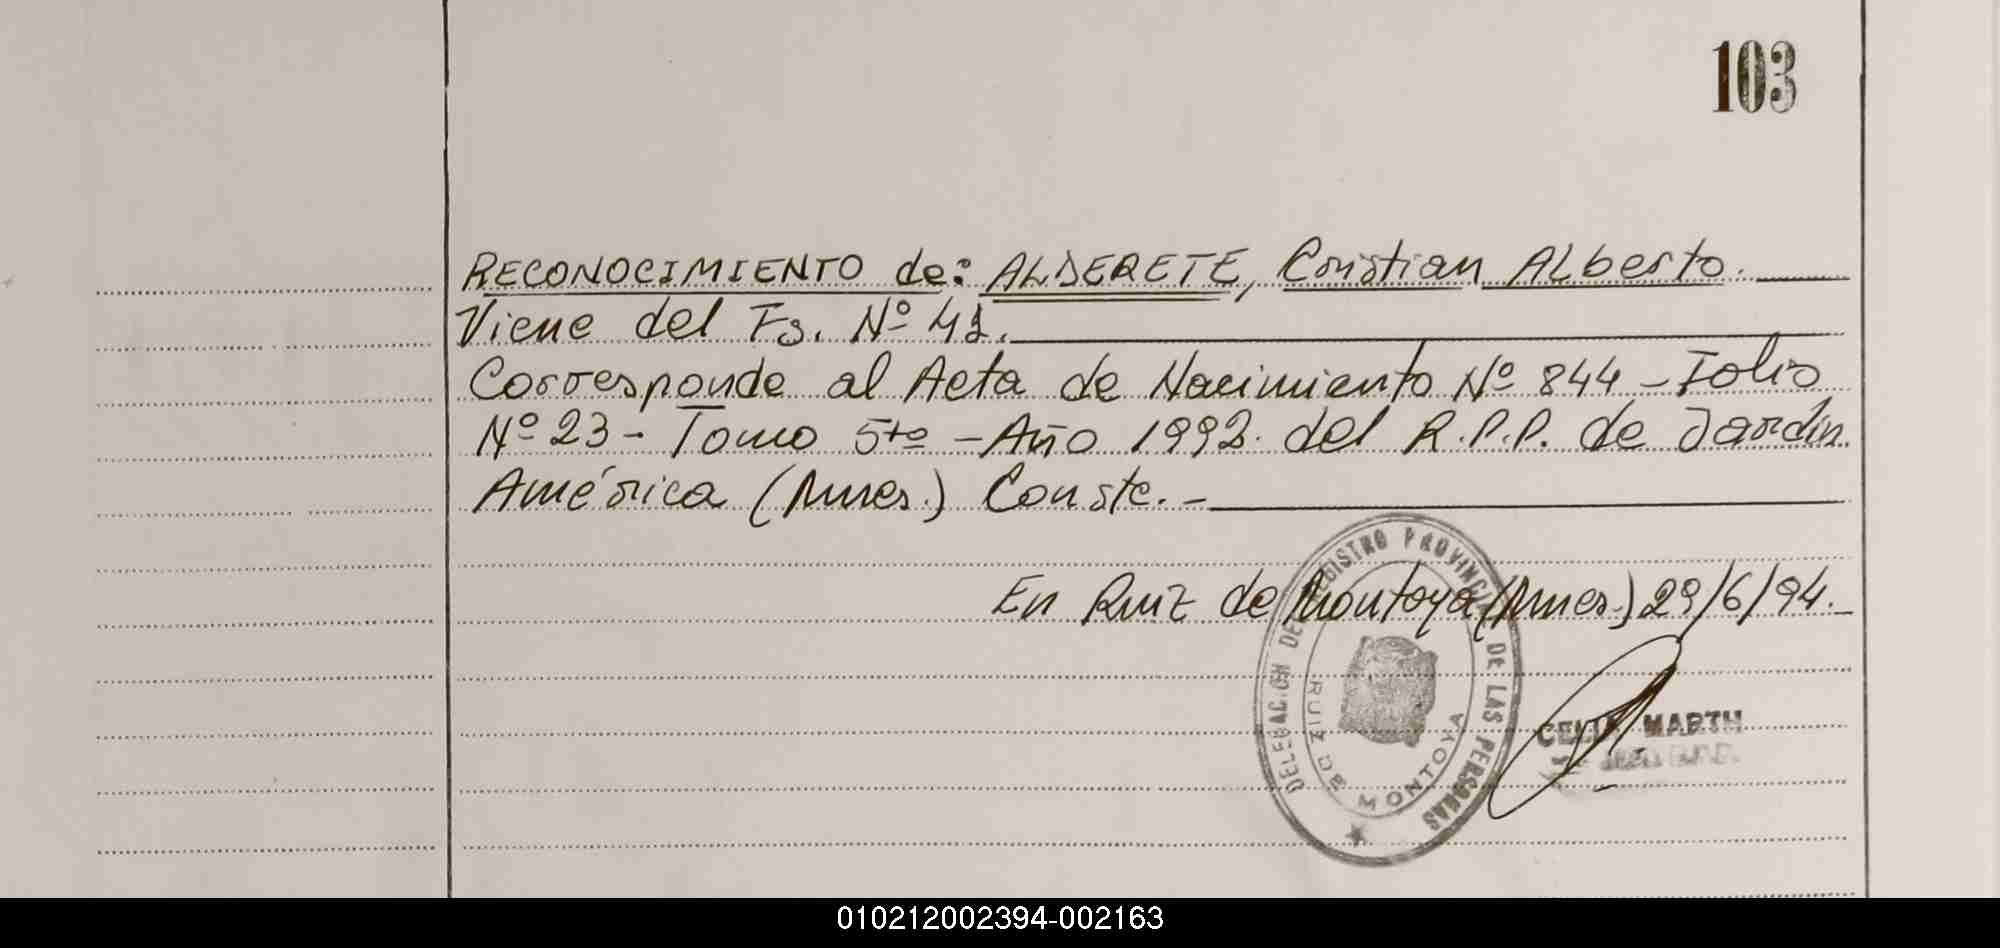 103
RECONOCIMIENTO de: ALDERETE, Cristian Alberto.
Viene del Fs. Nº 41.
Corresponde al Acta de Nacimiento Nº 844 - Folio
Nº 23 - Tomo 5to - Año 1992. del R.P.P. de Jardín
América (Mnes.) Conste. -
En Ruiz de Montoya (Mnes.) 29/6/94.
DELEGACION DEL REGISTRO PROVINCIAL DE LAS PERSONAS
RUIZ DE MONTOYA
CELIA MARTH
010212002394-002163